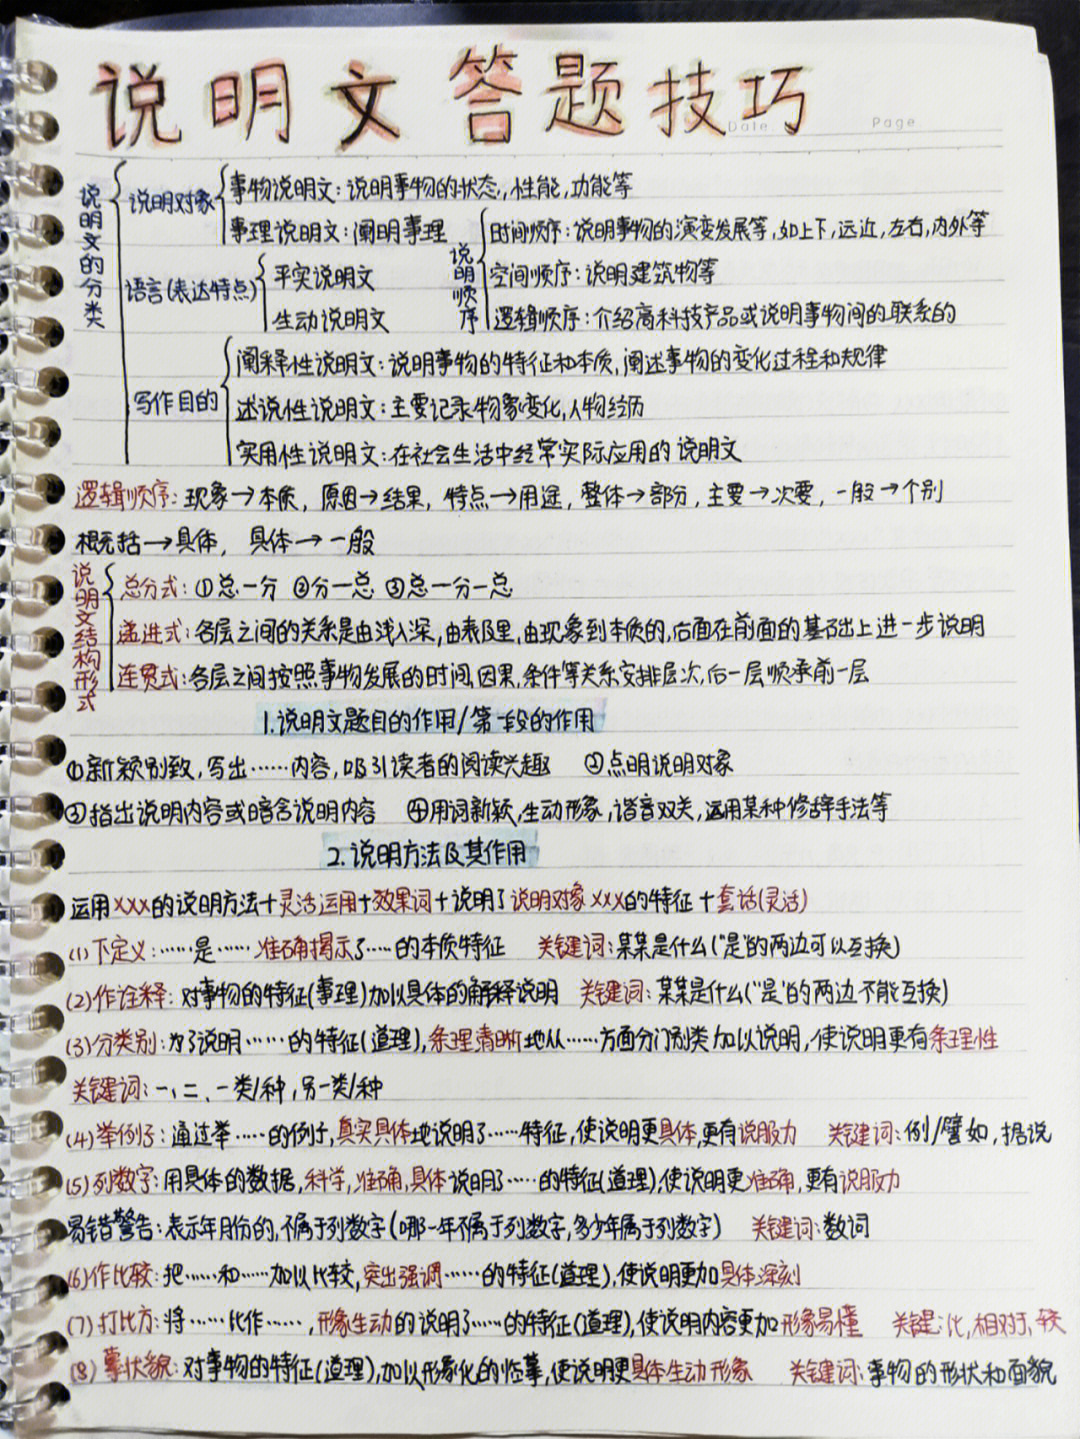 说明文答题技巧
Date. Page
说明文的分类
说明对象
事物说明文:说明事物的状态,性能,功能等
事理说明文:阐明事理
语言(表达特点)
平实说明文
生动说明文
说明顺序
时间顺序:说明事物的演变发展等,如上下,远近,左右,内外等
空间顺序:说明建筑物等
逻辑顺序:介绍高科技产品或说明事物间的联系的
写作目的
阐释性说明文:说明事物的特征和本质,阐述事物的变化过程和规律
述说性说明文:主要记录物象变化,人物经历
实用性说明文:在社会生活中经常实际应用的说明文
逻辑顺序:现象→本质,原因→结果,特点→用途,整体→部分,主要→次要,一般→个别
概括→具体,具体→一般
说明文结构形式
总分式:①总一分 ②分一总 ③总一分一总
递进式:各层之间的关系是由浅入深,由表及里,由现象到本质的,后面在前面的基础上进一步说明
连贯式:各层之间按照事物发展的时间,因果,条件等关系安排层次,后一层顺承前一层
1.说明文题目的作用/第一段的作用
①新颖别致,写出……内容,吸引读者的阅读兴趣 ②点明说明对象
③指出说明内容或暗含说明内容 ④用词新颖,生动形象,谐音双关,运用某种修辞手法等
2.说明方法及其作用
运用xxx的说明方法+灵活运用+效果词+说明了说明对象xxx的特征+套话(灵活)
(1)下定义:……是……准确揭示了……的本质特征 关键词:某某是什么("是"的两边可以互换)
(2)作诠释:对事物的特征(事理)加以具体的解释说明 关键词:某某是什么("是"的两边不能互换)
(3)分类别:为了说明……的特征(道理),条理清晰地从……方面分门别类加以说明,使说明更有条理性
关键词:一、二、一类/种,另一类/种
(4)举例子:通过举……的例子,真实具体地说明了……特征,使说明更具体,更有说服力 关键词:例/譬如,据说
(5)列数字:用具体的数据,科学,准确,具体说明了……的特征(道理),使说明更准确,更有说服力
易错警告:表示年月份的,不属于列数字(哪一年不属于列数字,多少年属于列数字) 关键词:数词
(6)作比较:把……和……加以比较,突出强调……的特征(道理),使说明更加具体深刻
(7)打比方:将……比作……,形象生动的说明了……的特征(道理),使说明内容更加形象易懂 关键:比,相对于,较
(8)摹状貌:对事物的特征(道理),加以形象化的临摹,使说明更具体生动形象 关键词:事物的形状和面貌